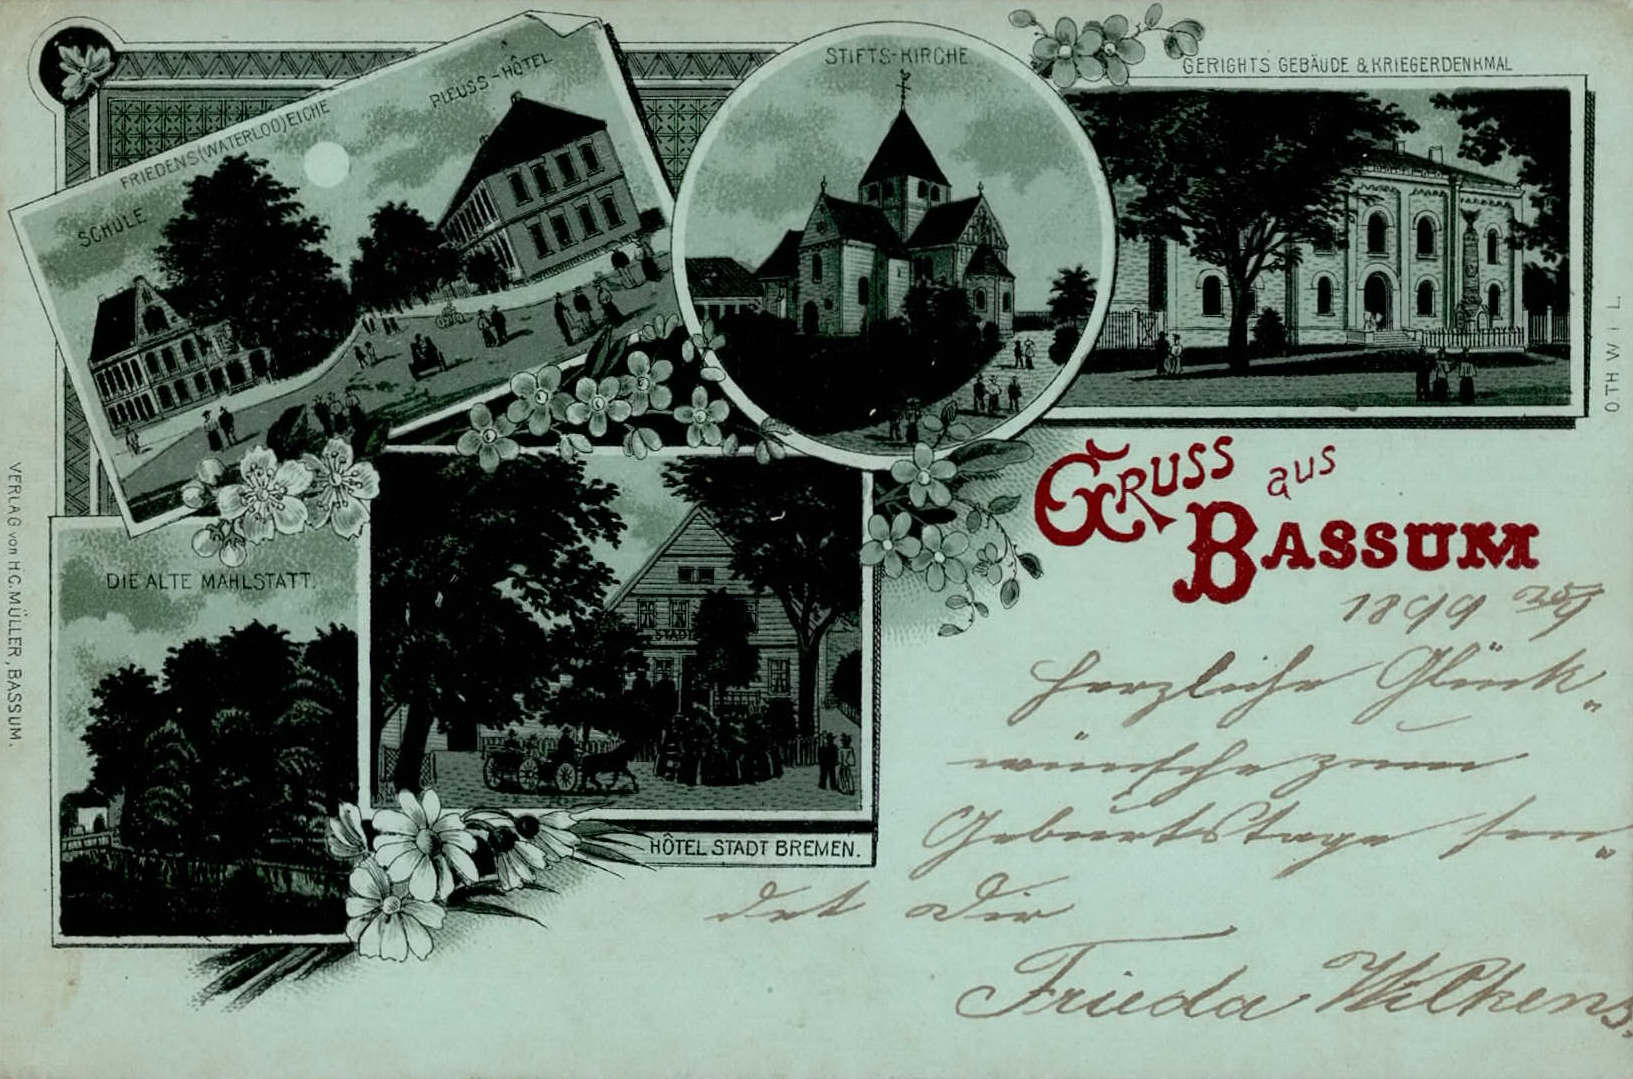 SCHULE
FRIEDENS(WATERLOO)EICHE
PLEUSS-HÔTEL
STIFTS-KIRCHE
GERICHTS GEBÄUDE & KRIEGERDENKMAL
Gruss aus
Bassum
1899 25/9
Herzliche Glück„
wünsche zum
Geburtstage sen„
det Dir
Frieda Wilkens.
DIE ALTE MAHLSTATT.
STADT
HÔTEL STADT BREMEN.
VERLAG von H.C. MÜLLER, BASSUM.
OTH W I L